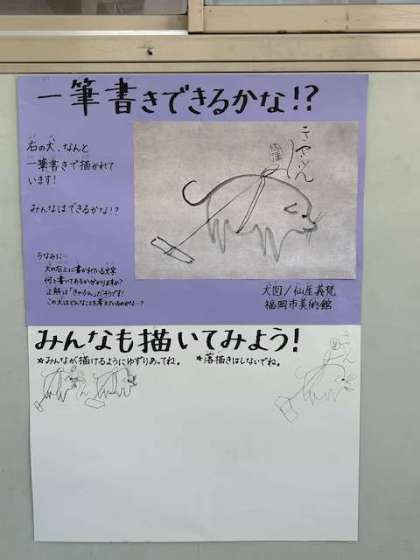 一筆書きできるかな!?
右の犬、なんと
一筆書きで描かれて
います!
みんなはできるかな!?
きゃふん
ちなみに…
犬の右上に書かれている文字
何と書いてあるかわかりますか?
正解は「きゃふん」だそうです!
この犬はどんなことを考えているのかな…?
犬図/仙厓義梵
福岡市美術館
みんなも描いてみよう!
★みんなが描けるようにゆずりあってね。 ★落描きはしないでね。